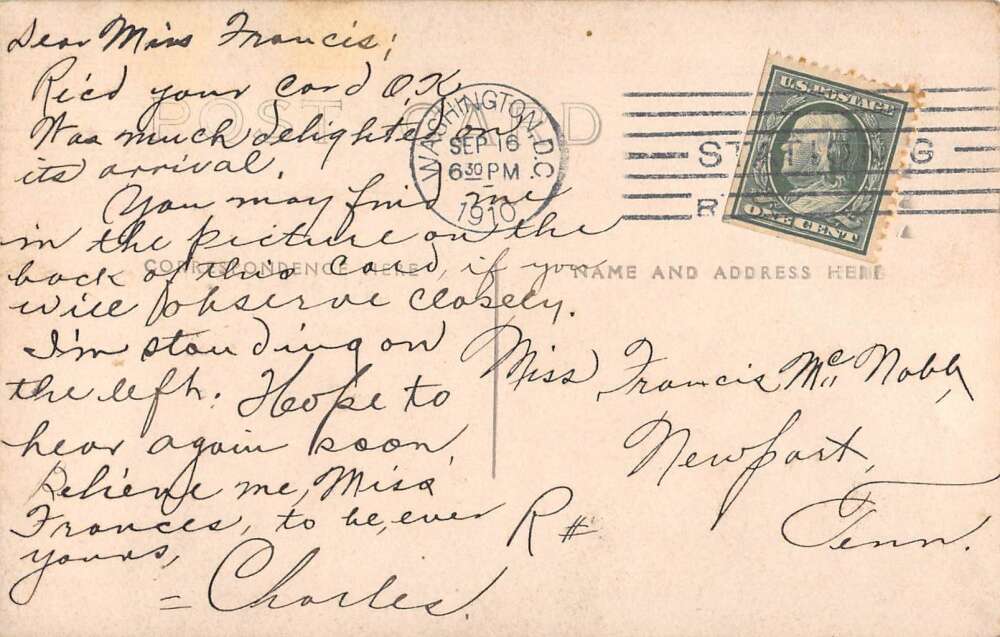 Dear Miss Francis;
Rec'd your card O.K.
Was much delighted on
its arrival.
You may find me
in the picture on the
back of this card, if you
will observe closely.
I'm standing on
the left. Hope to
hear again soon,
Believe me, Miss
Frances, to be, ever
yours,
= Charles.
POST CARD
CORRESPONDENCE HERE
WASHINGTON, D.C.
SEP 16
6 30 PM
1910
U.S. POSTAGE
ONE CENT
NAME AND ADDRESS HERE
Miss Francis Mc Nabb,
Newport,
Tenn.
R #